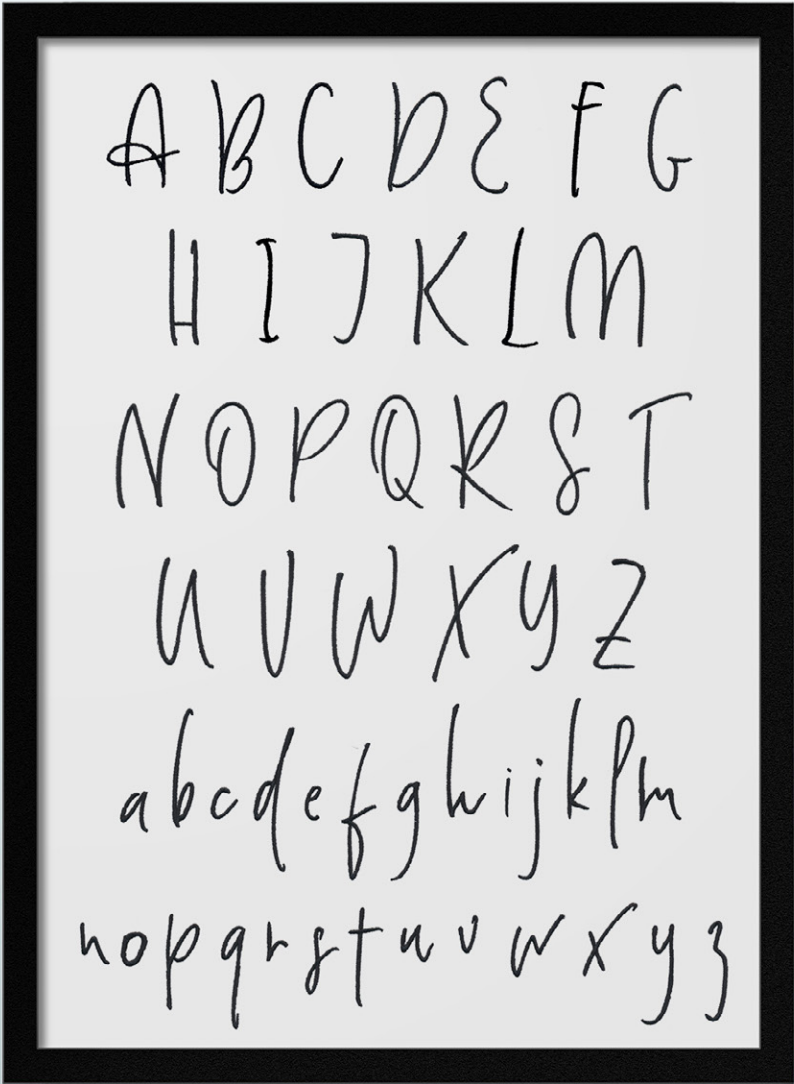 A B C D E F G
H I J K L M
N O P Q R S T
U V W X Y Z
a b c d e f g h i j k l m
n o p q r s t u v w x y z